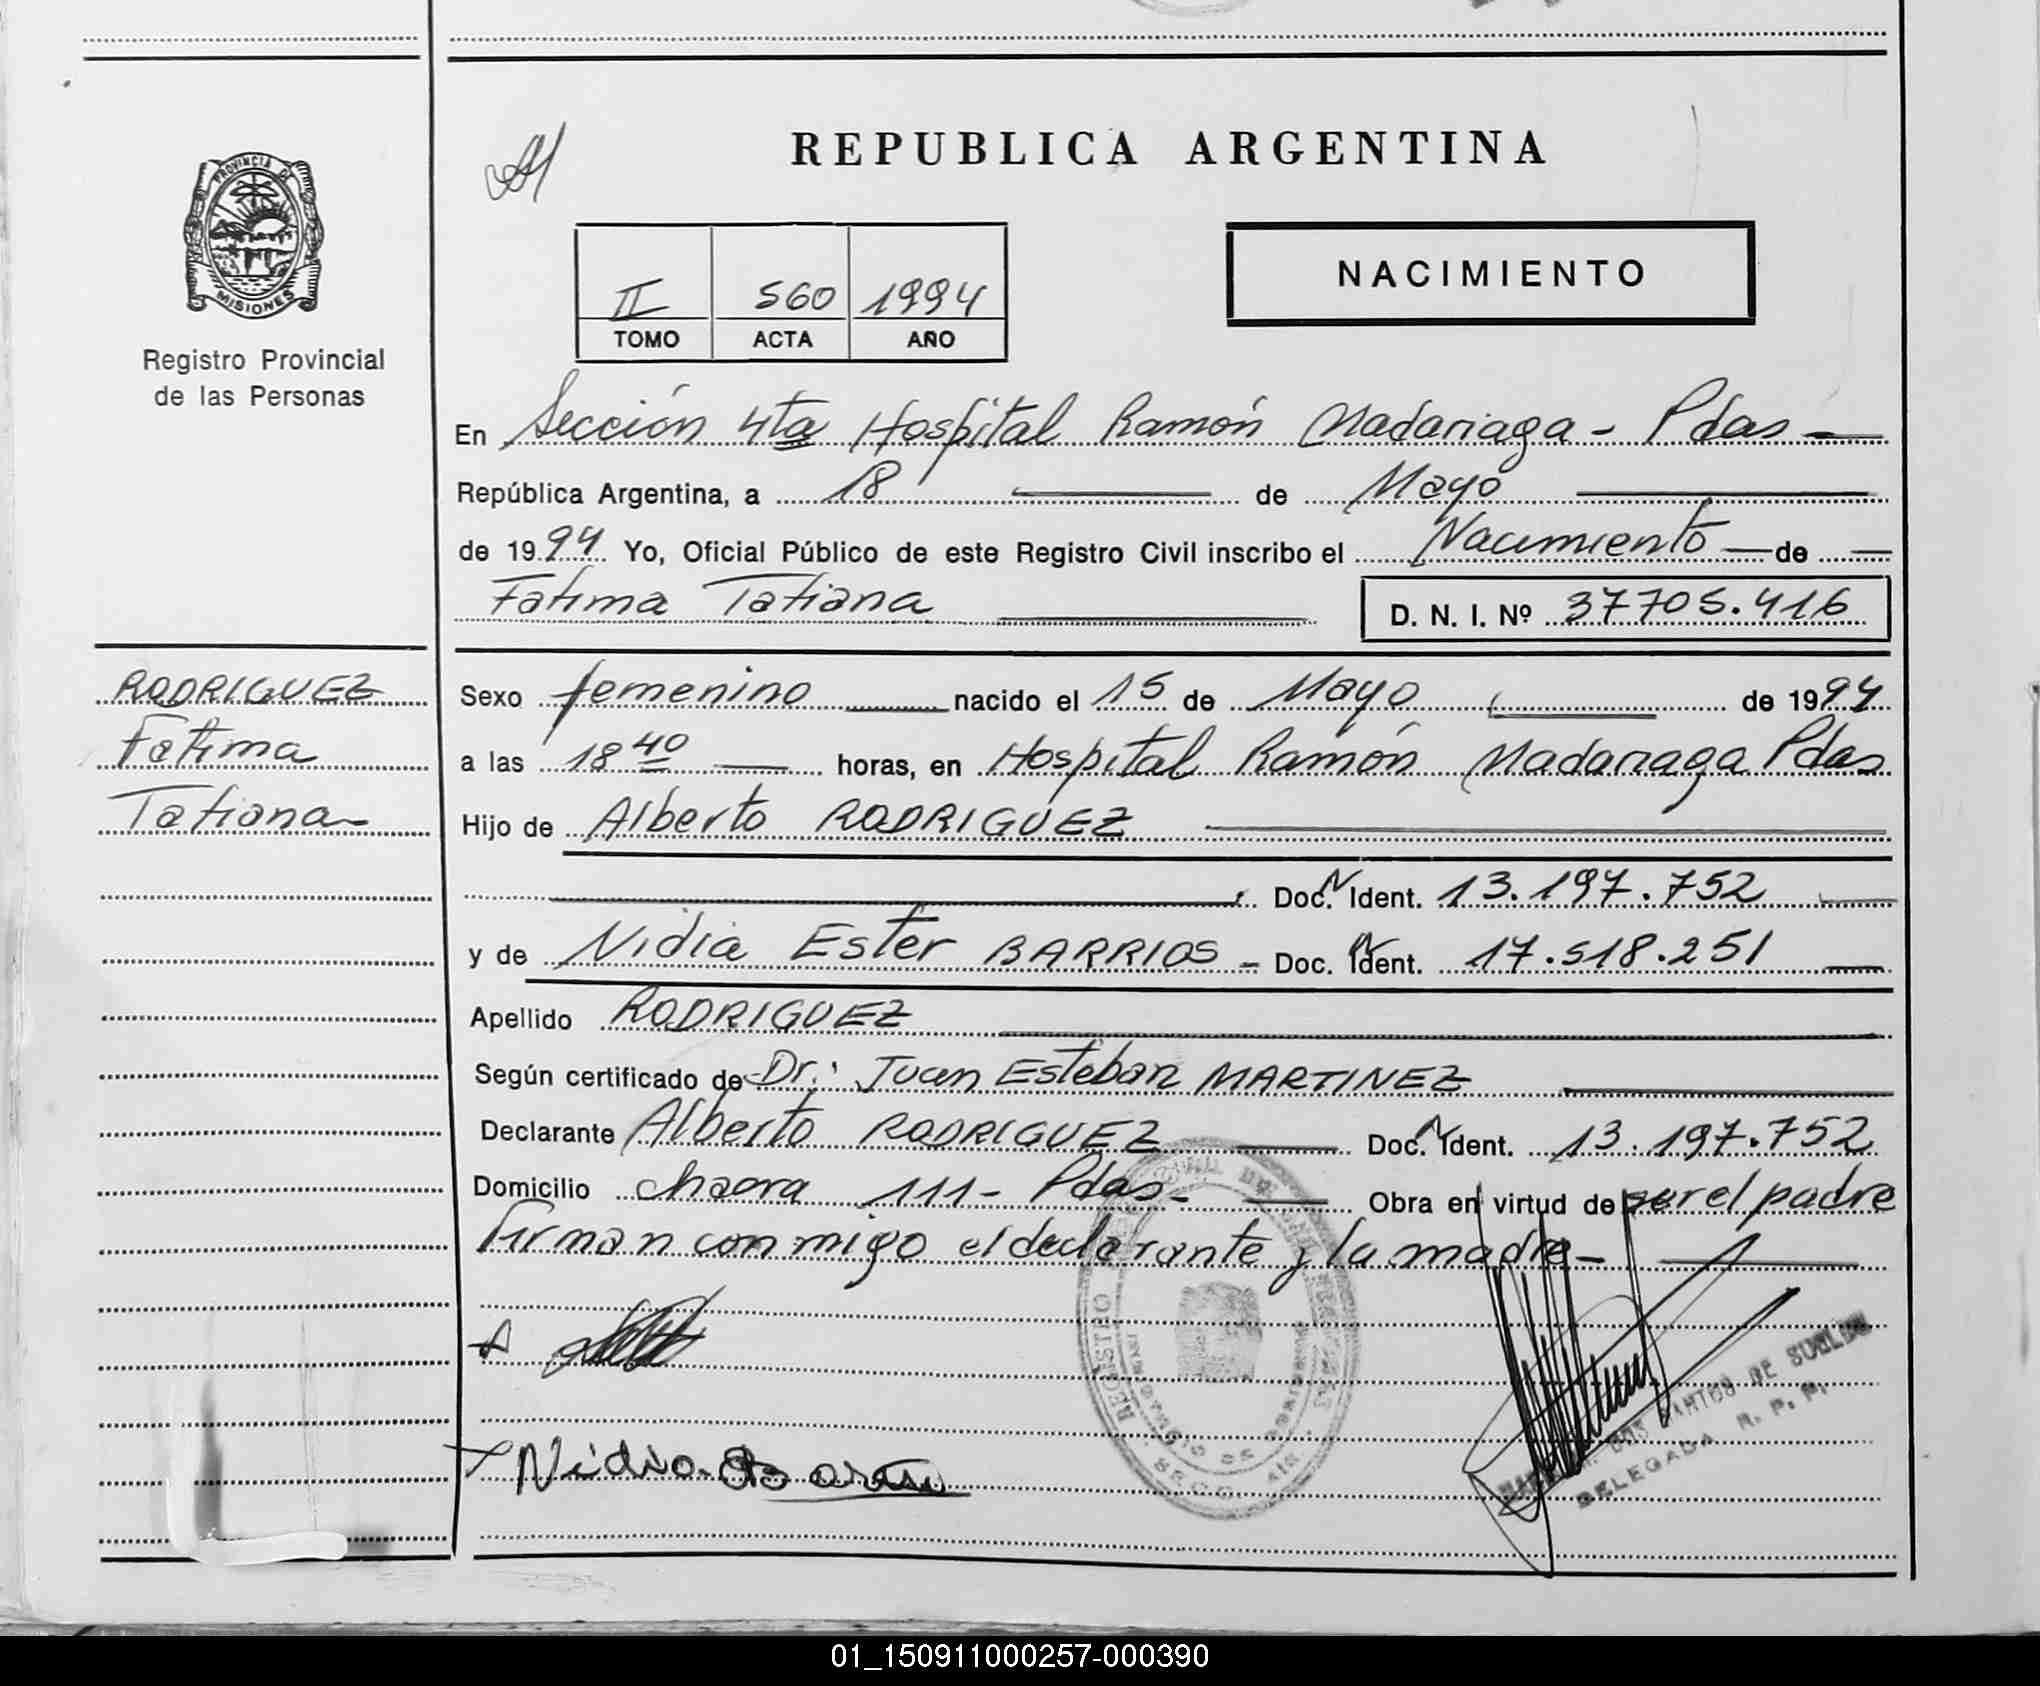 REPUBLICA ARGENTINA
PROVINCIA DE
MISIONES
Registro Provincial
de las Personas
II 560 1994
TOMO ACTA AÑO
NACIMIENTO
En Sección 4ta Hospital Ramón Madariaga - Pdas -
República Argentina, a 18 de Mayo
de 1994 Yo, Oficial Público de este Registro Civil inscribo el Nacimiento de
Fatima Tatiana D. N. I. Nº 37705.416
RODRIGUEZ
Fatima
Tatiana
Sexo femenino nacido el 15 de Mayo de 1994
a las 18 40 horas, en Hospital Ramón Madariaga Pdas
Hijo de Alberto RODRIGUEZ
Doc. N Ident. 13.197.752
y de Nidia Ester BARRIOS - Doc. N Ident. 17.518.251
Apellido RODRIGUEZ
Según certificado de Dr.: Juan Esteban MARTINEZ
Declarante Alberto RODRIGUEZ Doc. N Ident. 13.197.752
Domicilio chacra 111- Pdas- Obra en virtud de ser el padre
Firman conmigo el declarante y la madre-
Nidia
REGISTRO
DOS SANTOS DE
DELEGADA R. P. P.
01_150911000257-000390